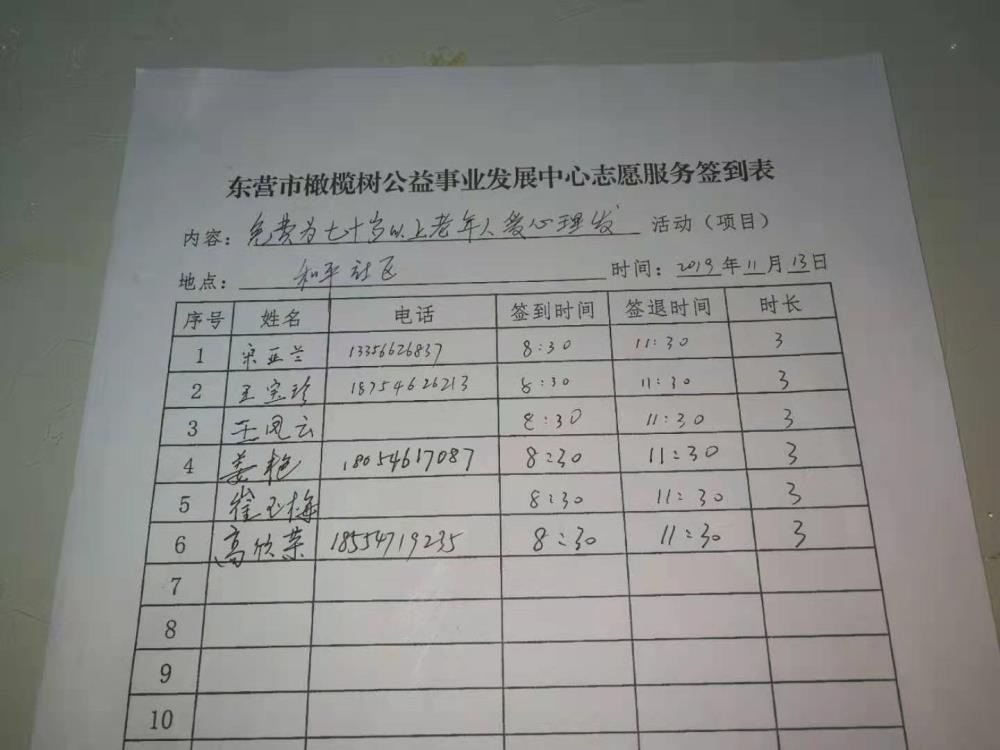 东营市橄榄树公益事业发展中心志愿服务签到表
内容：免费为七十岁以上老年人爱心理发 活动（项目）
地点：和平社区 时间：2019年11月13日
序号 姓名 电话 签到时间 签退时间 时长
1 宋亚兰 13356626837 8:30 11:30 3
2 王宝珍 18754626213 8:30 11:30 3
3 王凤云 8:30 11:30 3
4 姜艳 18054617087 8:30 11:30 3
5 崔玉梅 8:30 11:30 3
6 高欣荣 18554719235 8:30 11:30 3
7
8
9
10